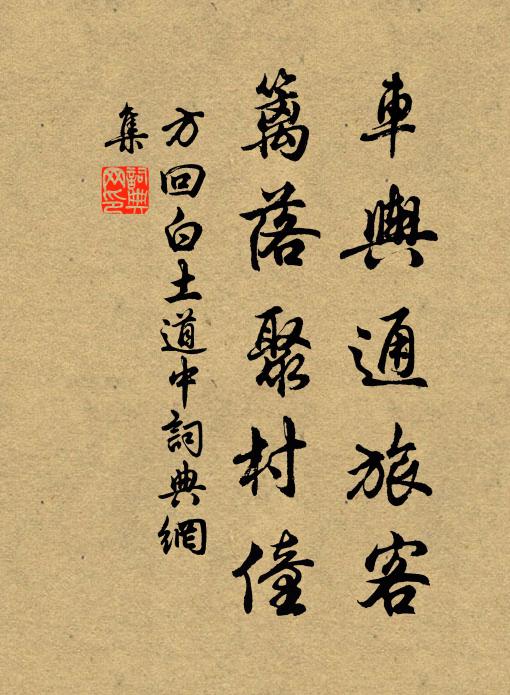 車輿通旅客
籬落聚村僮
方回白土道中詞典網
集
詞典
网印